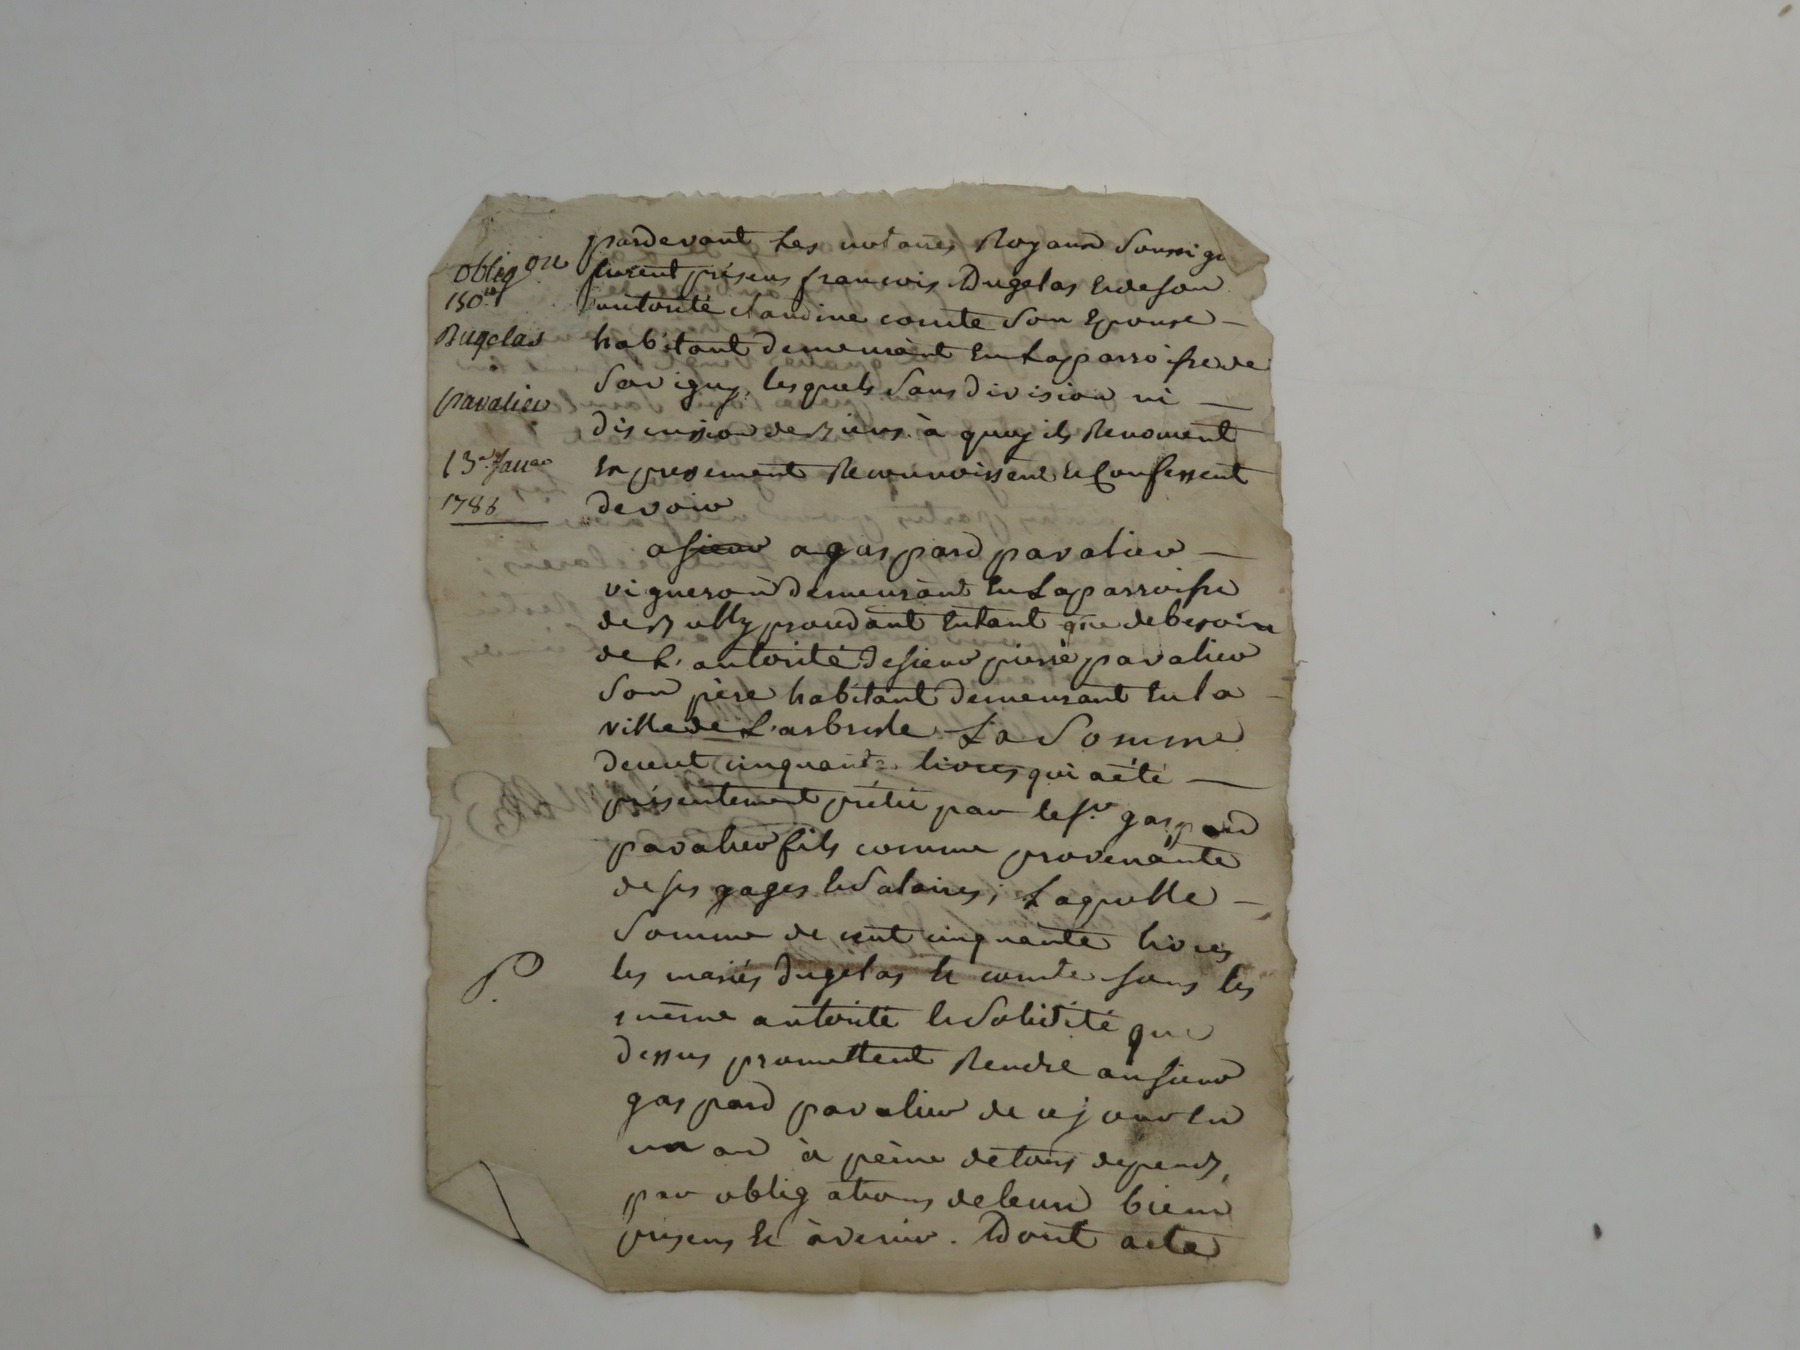 oblig.on
150.tt
Dugelas
pavalier
13e Janer
1786
pardevant Les notaires Royaux Soussig
furent présens francois Dugelas et de son
autorité claudine comte Son Epouse —
habitant demeurant En La parroisse de
Savigny, lesquels Sans division ni —
discussion de Biens à quoy ils Renoncent
Expressement Reconnoissent et Confessent
devoir
a sieur a gaspard pavalier —
vigneron demeurant En La parroisse
de Bully prondant Entant que de besoin
de L'autorité de sieur pierre pavalier
Son père habitant demeurant En la
ville de L'arbresle La Somme
de cent cinquante livres qui a été —
présentement prétée par le sr. gaspard
pavalier fils comme provenante
de ses gages et Salaires; Laquelle —
Somme de cent cinquante livres
les mariés dugelas et comte sous les
même autorité et Solidité que
dessus promettent Rendre au sieur
gaspard pavalier de ce jour En
un an à peine de tous depends,
par obligations de leurs biens
présens Et à venir. Dont acte
P.